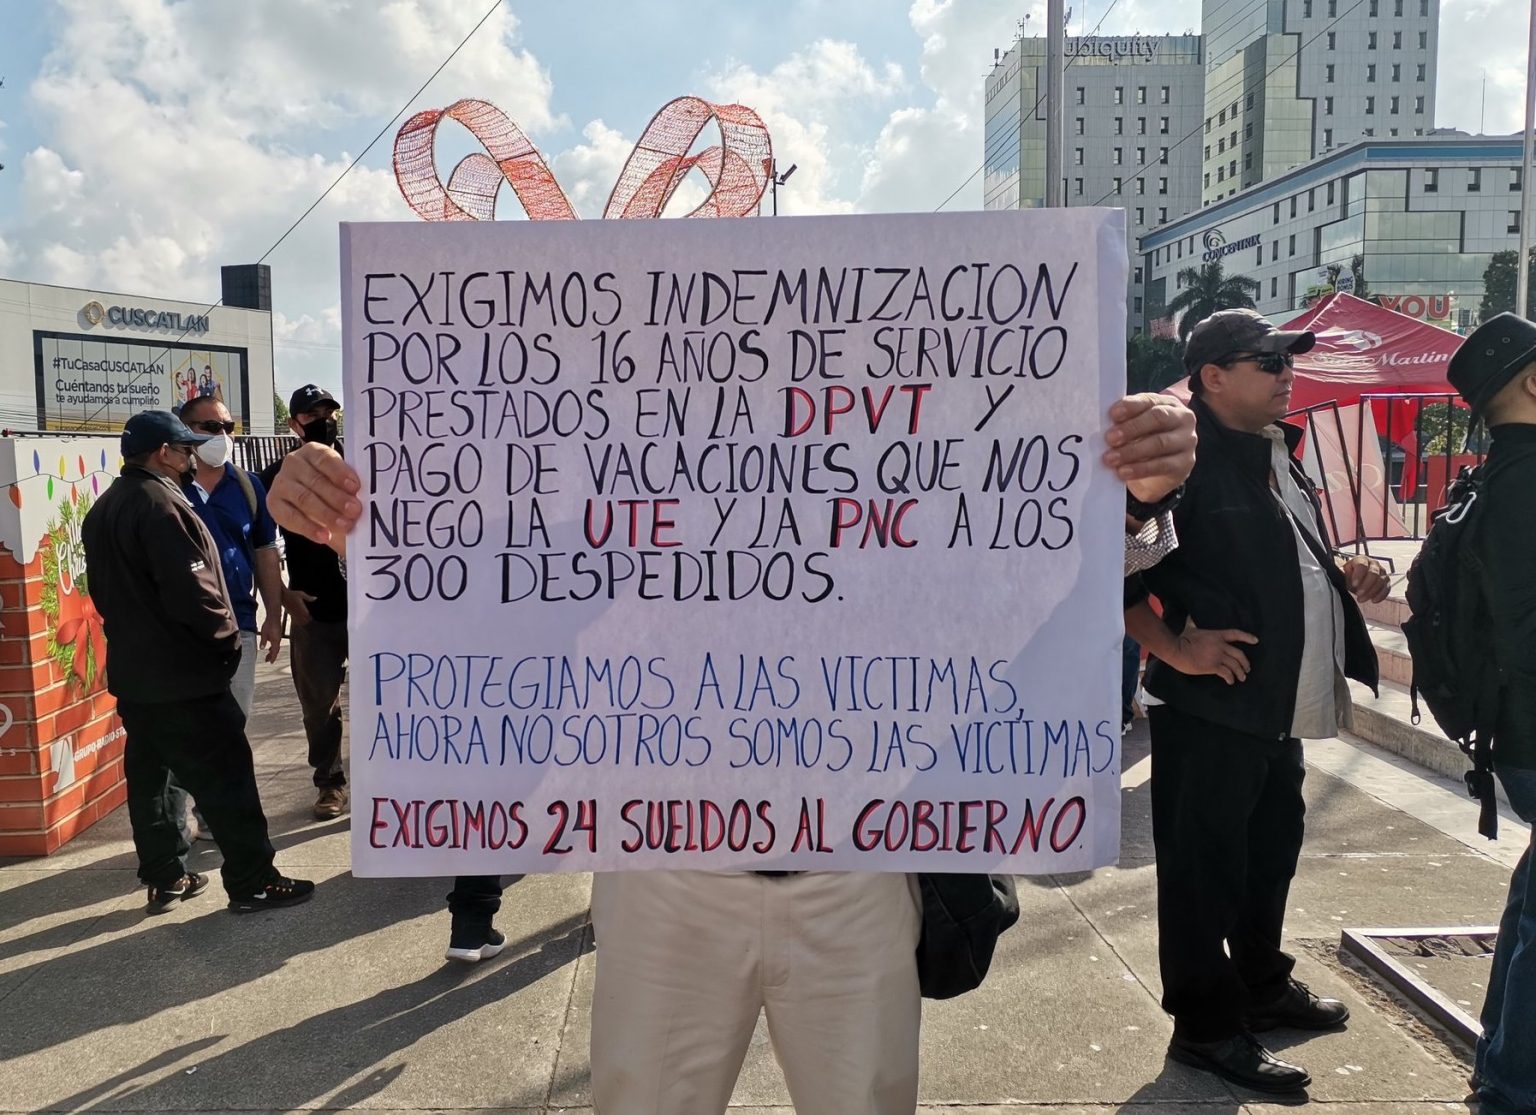 ubiquity
CONCENTRIX
CUSCATLAN
#TuCasaCUSCATLAN
Cuéntanos tu sueño
te ayudamos a cumplirlo
YOU
Martin
EXIGIMOS INDEMNIZACION
POR LOS 16 AÑOS DE SERVICIO
PRESTADOS EN LA DPVT Y
PAGO DE VACACIONES QUE NOS
NEGO LA UTE Y LA PNC A LOS
300 DESPEDIDOS.
PROTEGIAMOS A LAS VICTIMAS,
AHORA NOSOTROS SOMOS LAS VICTIMAS.
EXIGIMOS 24 SUELDOS AL GOBIERNO.